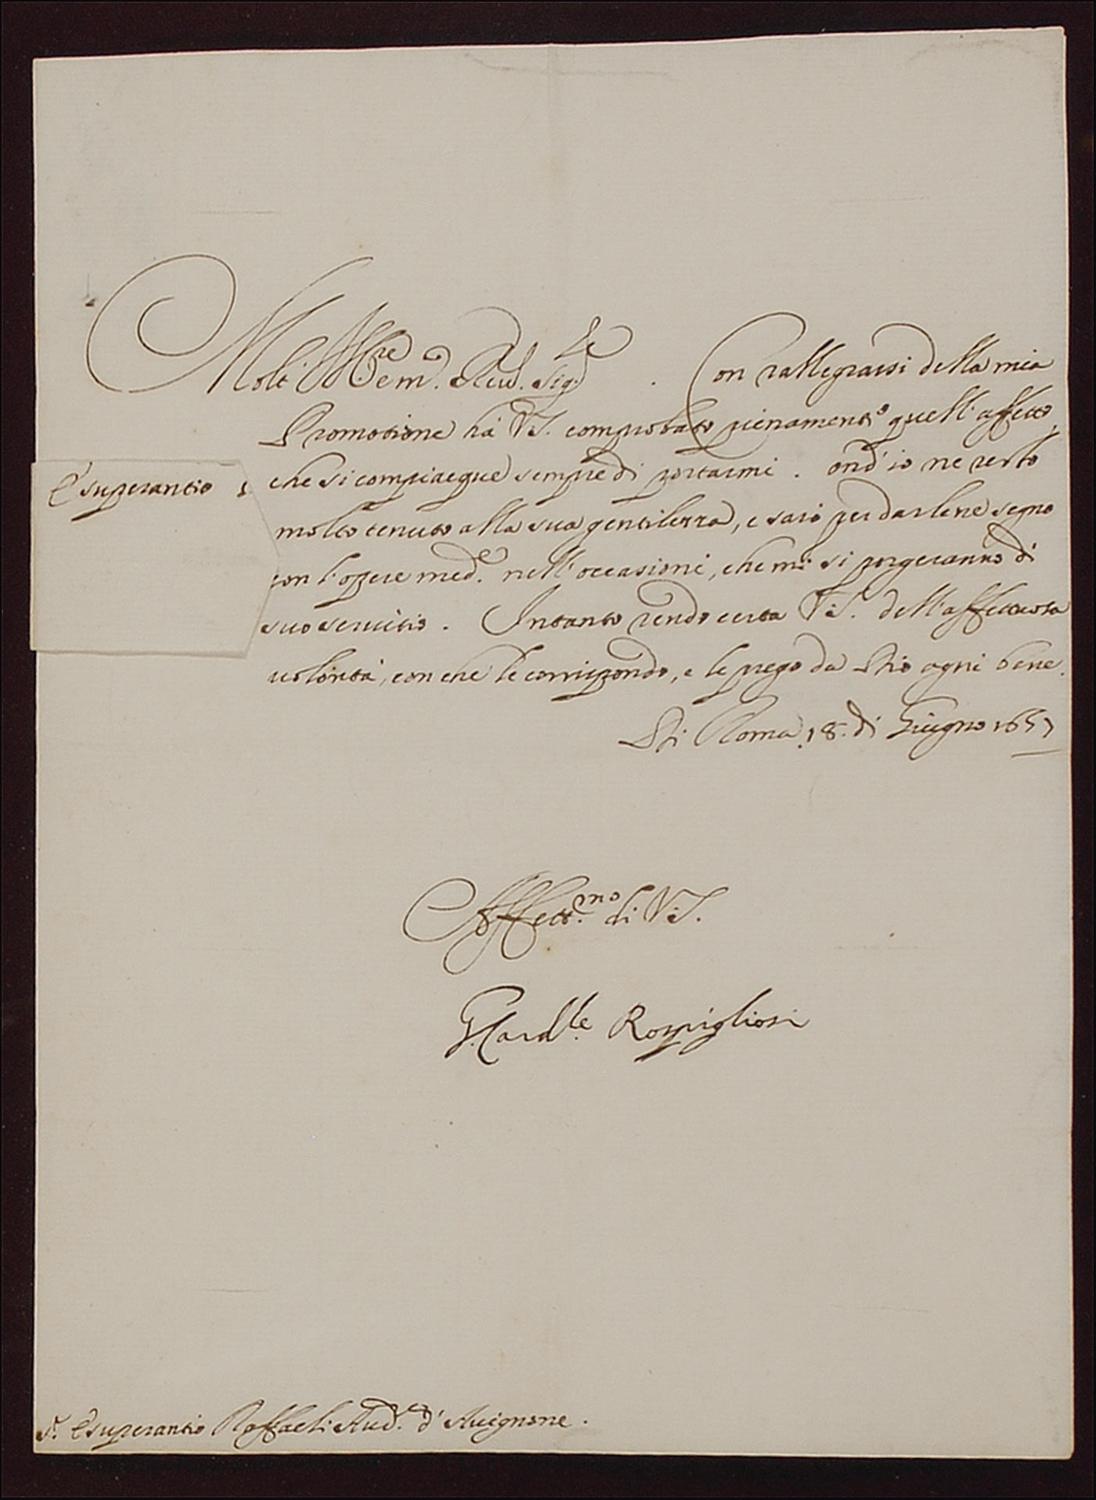 Molt' Ill.re em. Reu. Sig.re . Con rallegrarsi della mia
Promotione hà V.S. comprobato pienamente quell'affetto,
che si compiacque sempre di portarmi . ond'io ne resto
Esuperantio
molto tenuto alla sua gentilezza, e sarò per darlene segno
con l'opere med.e nell'occasioni, che mi si porgeranno di
suo seruitio . Intanto rendo certa V.S. dell'affettuosa
volontà, con che le corrispondo, e le prego da Dio ogni bene.
Di Roma 18. di Giugno 1657
Affett.mo di V.S.
G. Card.le Rospigliosi
S.r Esuperantio Raffaeli Aud.re d'Auignone .